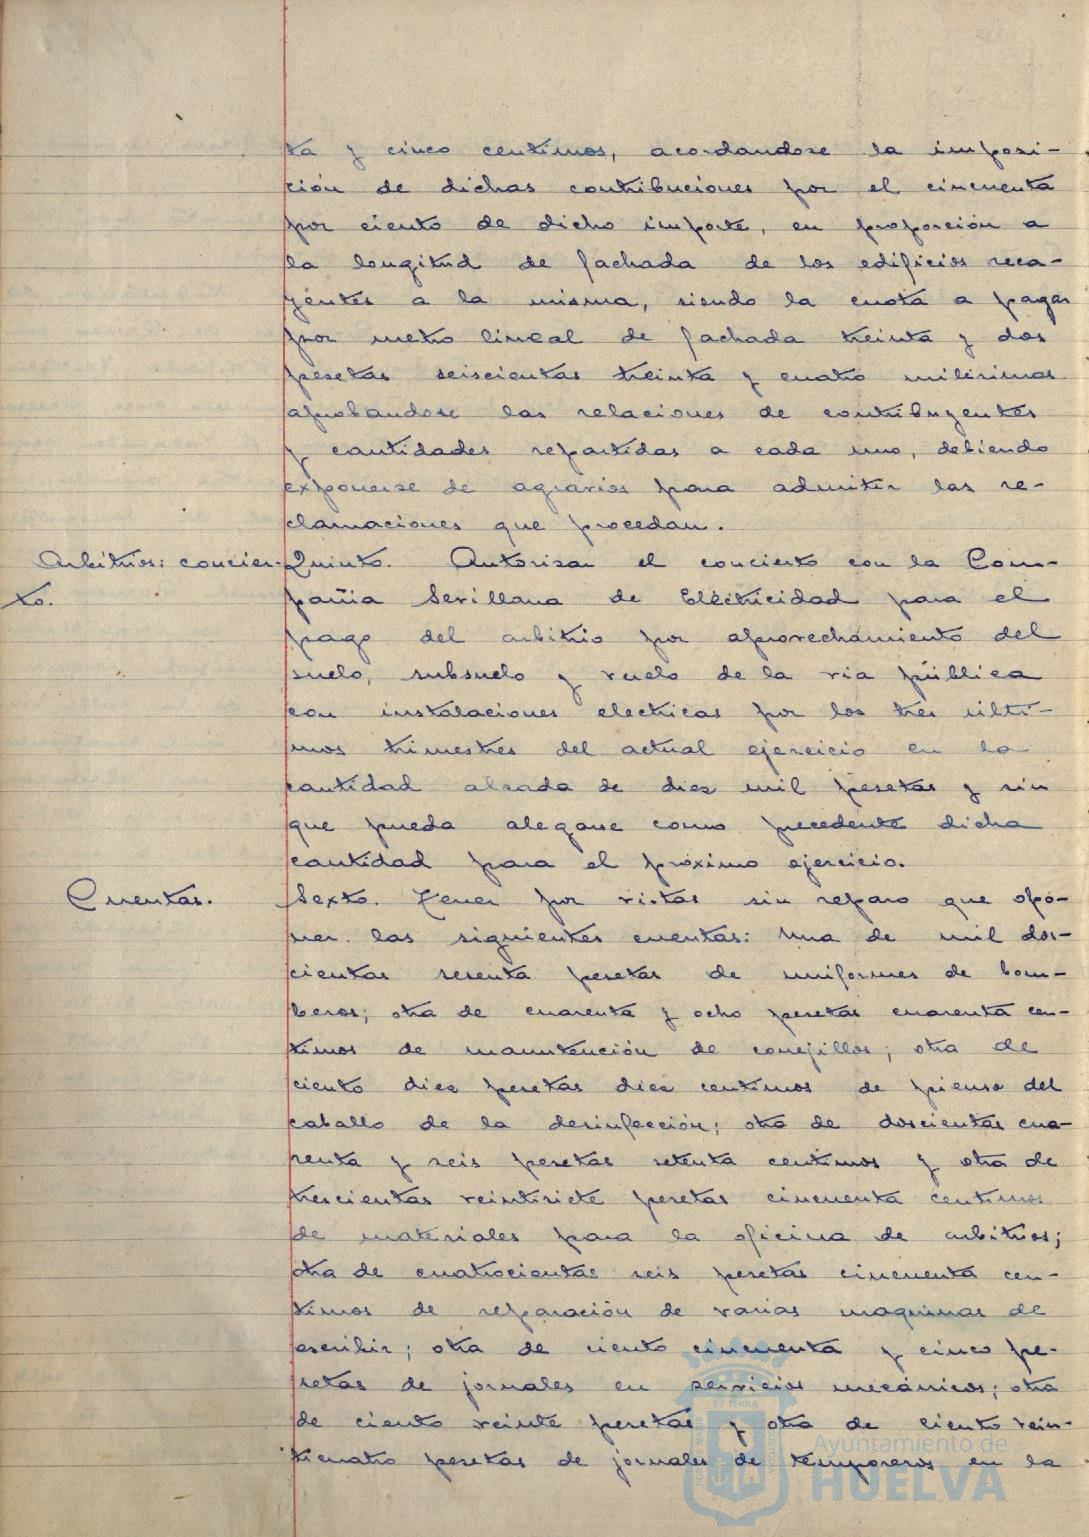 ta y cinco centimos, acordandose la imposi-
ción de dichas contribuciones por el cincuenta
por ciento de dicho importe, en proporción a
la longitud de fachada de los edificios reca-
yentes a la misma, siendo la cuota a pagar
por metro lineal de fachada treinta y dos
pesetas seiscientas treinta y cuatro milesimas
aprobandose las relaciones de contribuyentes
y cantidades repartidas a cada uno, debiendo
exponerse de agrarios para admitir las re-
clamaciones que procedan.
Arbitrios: concier-
to.
Quinto. Autorisar el concierto con la Com-
pañia Sevillana de Electricidad para el
pago del arbitrio por aprovechamiento del
suelo, subsuelo y vuelo de la via pública
con instalaciones electricas por los tres ulti-
mos trimestres del actual ejercicio en la
cantidad alzada de diez mil pesetas y sin
que pueda alegarse como precedente dicha
cantidad para el próximo ejercicio.
Cuentas.
Sexto. Tener por vistas sin reparo que opo-
ner las siguientes cuentas: una de mil dos-
cientas sesenta pesetas de uniformes de bom-
beros; otra de cuarenta y ocho pesetas cuarenta cen-
timos de manutención de conejillos; otra de
ciento diez pesetas diez centimos de pienso del
caballo de la desinfección; otra de doscientas cua-
renta y seis pesetas setenta centimos y otra de
trescientas veintisiete pesetas cincuenta centimos
de materiales para la oficina de arbitrios;
otra de cuatrocientas seis pesetas cincuenta cen-
timos de reparación de varias maquinas de
escribir; otra de ciento cincuenta y cinco pe-
setas de jornales en servicios mecánicos; otra
de ciento veinte pesetas y otra de ciento vein-
ticuatro pesetas de jornales de temporeros en la
Ayuntamiento de
HUELVA